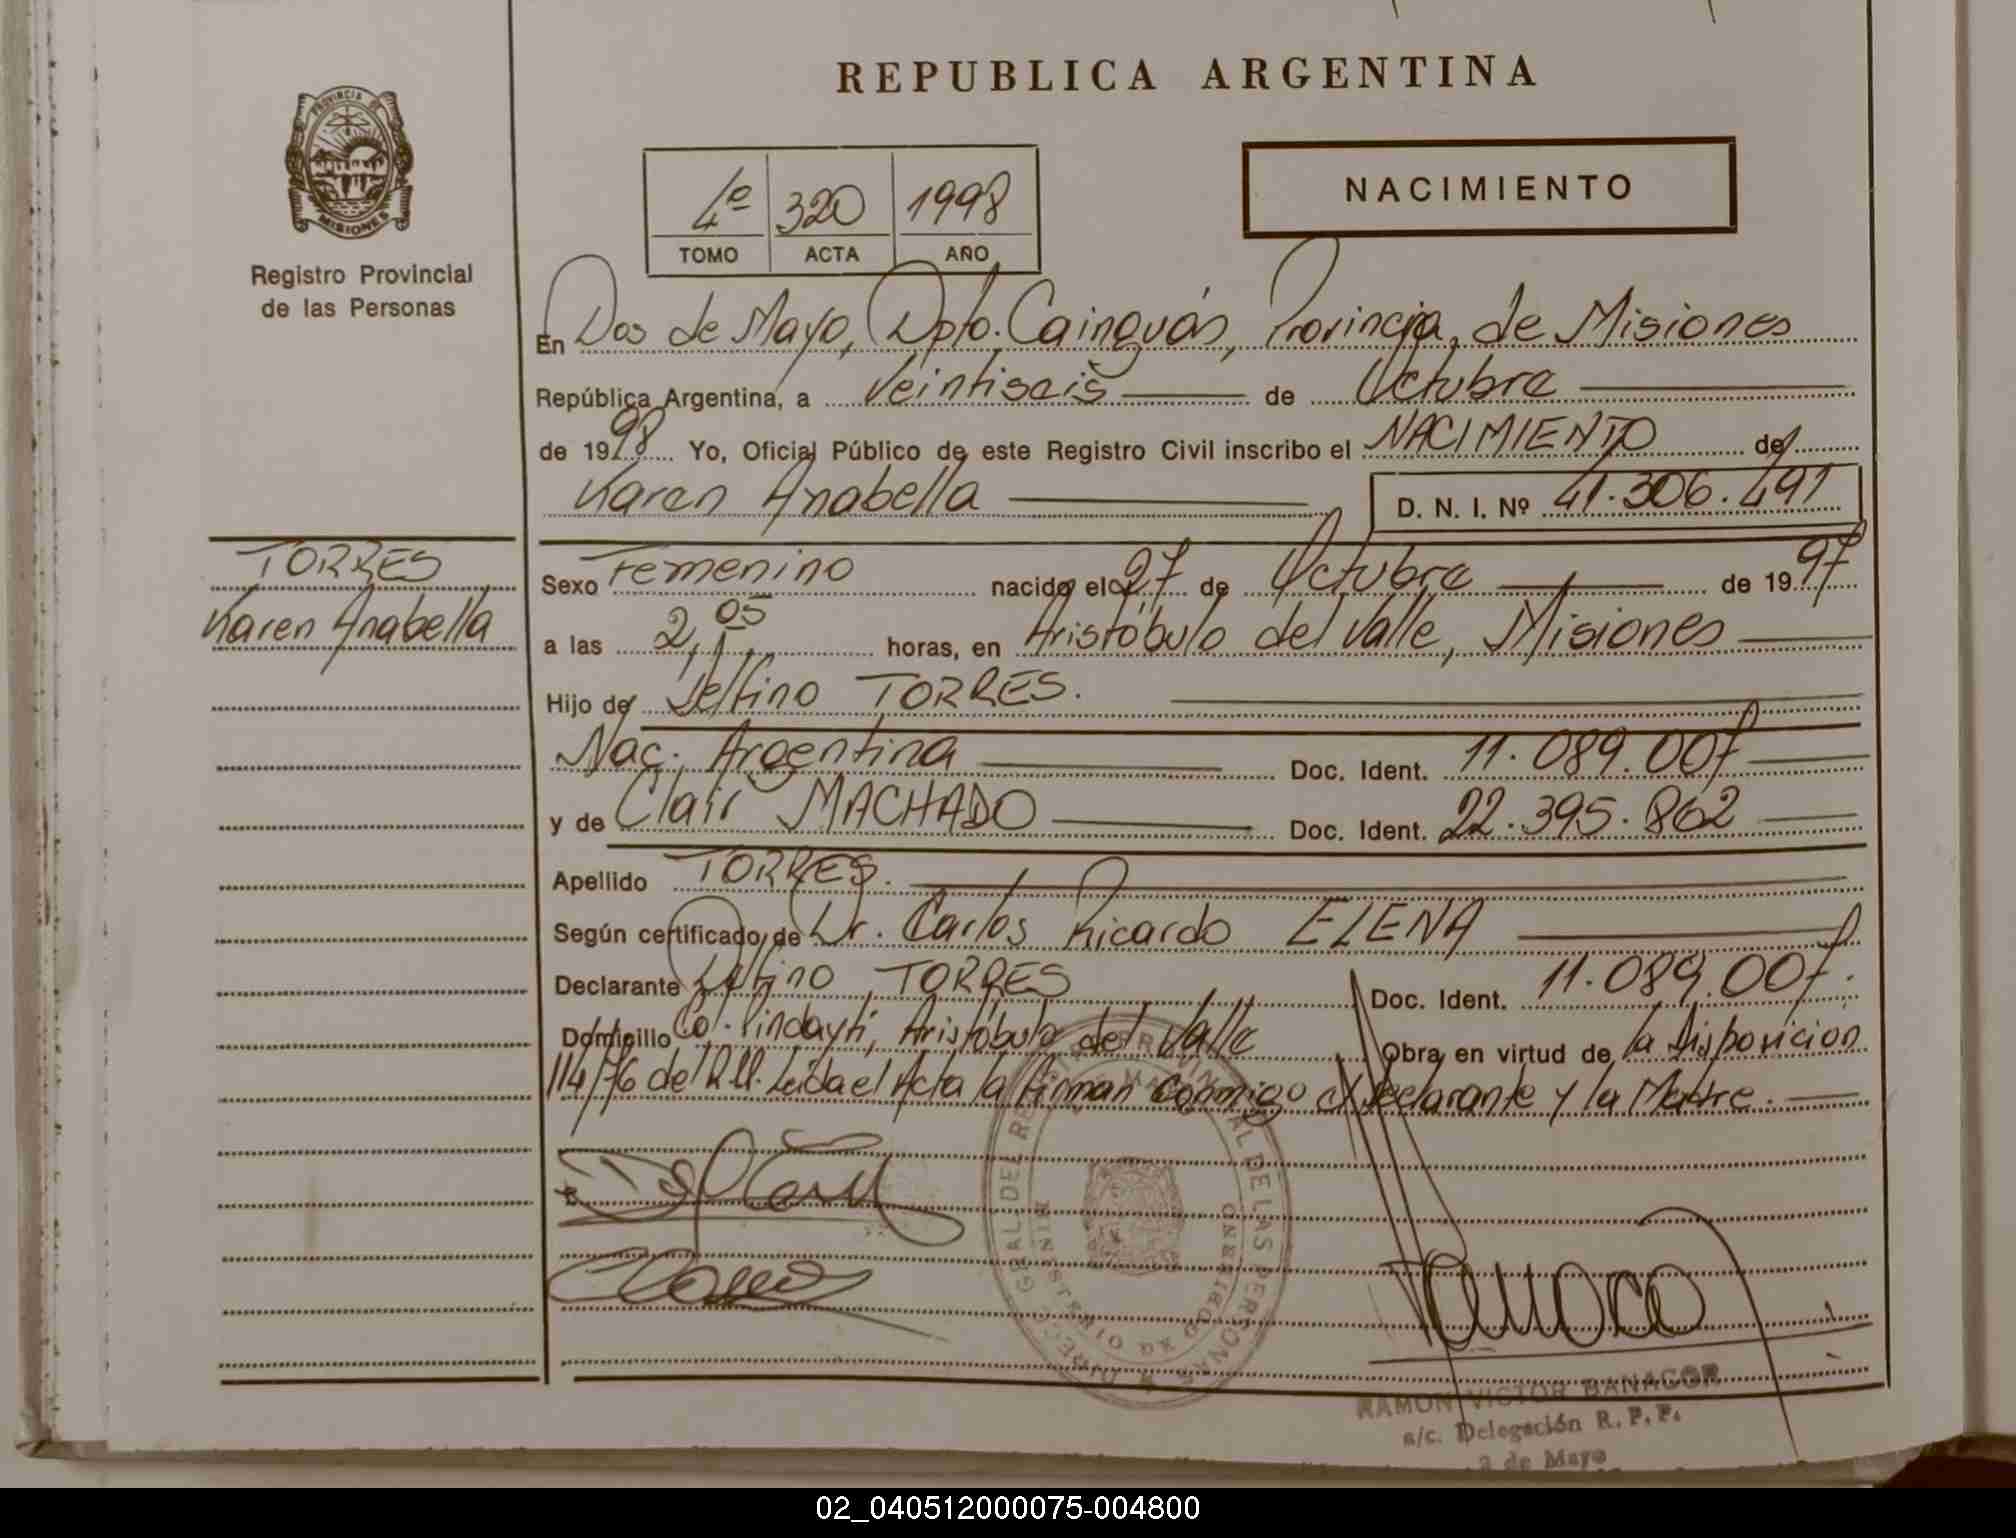 REPUBLICA ARGENTINA
PROVINCIA DE
MISIONES
Registro Provincial
de las Personas
4º 320 1998
TOMO ACTA AÑO
NACIMIENTO
En Dos de Mayo, Dpto. Cainguás, Provincia de Misiones
República Argentina, a Veintiseis de Octubre
de 1998 Yo, Oficial Público de este Registro Civil inscribo el NACIMIENTO de
Karen Anabella D. N. I. Nº 41.306.491
TORRES
Karen Anabella
Sexo Femenino nacido el 27 de Octubre de 1997
a las 2,05 horas, en Aristóbulo del Valle, Misiones
Hijo de Delfino TORRES.
Nac. Argentina Doc. Ident. 11.089.007
y de Clair MACHADO Doc. Ident. 22.395.862
Apellido TORRES.
Según certificado de Dr. Carlos Ricardo ELENA
Declarante Delfino TORRES Doc. Ident. 11.089.007.
Domicilio Col. Pindaytí, Aristóbulo del Valle Obra en virtud de la Disposicion
114/76 del R.U. Leida el Acta la firman conmigo el Declarante y la Madre.
RAMON VICTOR BANACOR
a/c. Delegación R. P. P.
2 de Mayo
02_040512000075-004800